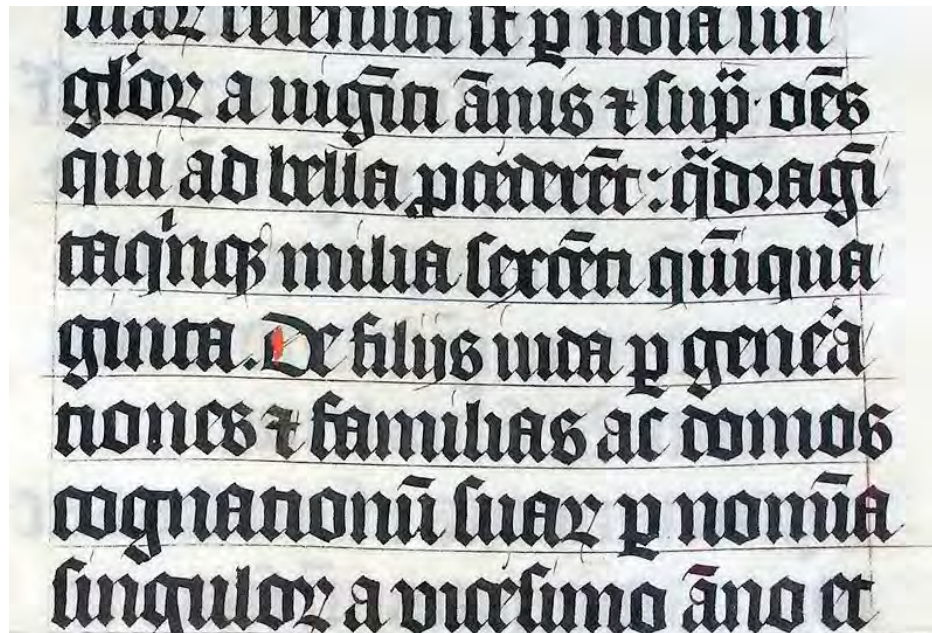 suaꝝ recensiti sūt ꝑ noīa sin
gl̄oꝝ a uiginti ānis ⁊ sup̄ · oēs
qui ad bella ꝓcederēt : qͣdragī
taqⁱnqꝫ milia sexcēti qūiqua
ginta . De filijs iuda ꝑ gen̄ea
tiones ⁊ familias ac domos
cognationū suaꝝ ꝑ nom̄ia
singuloꝝ a vicesimo āno et